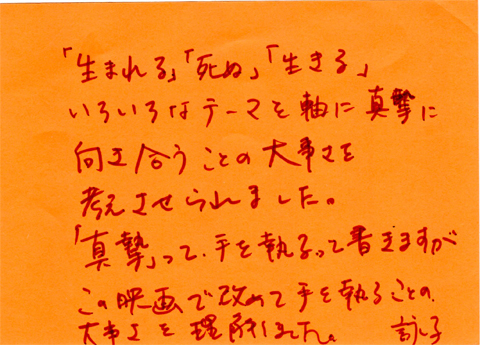 「生まれる」「死ぬ」「生きる」
いろいろなテーマを軸に真摯に
向き合うことの大事さを
考えさせられました。
「真摯」って、手を執るって書きますが
この映画で改めて手を執ることの
大事さを理解しました。 詠子